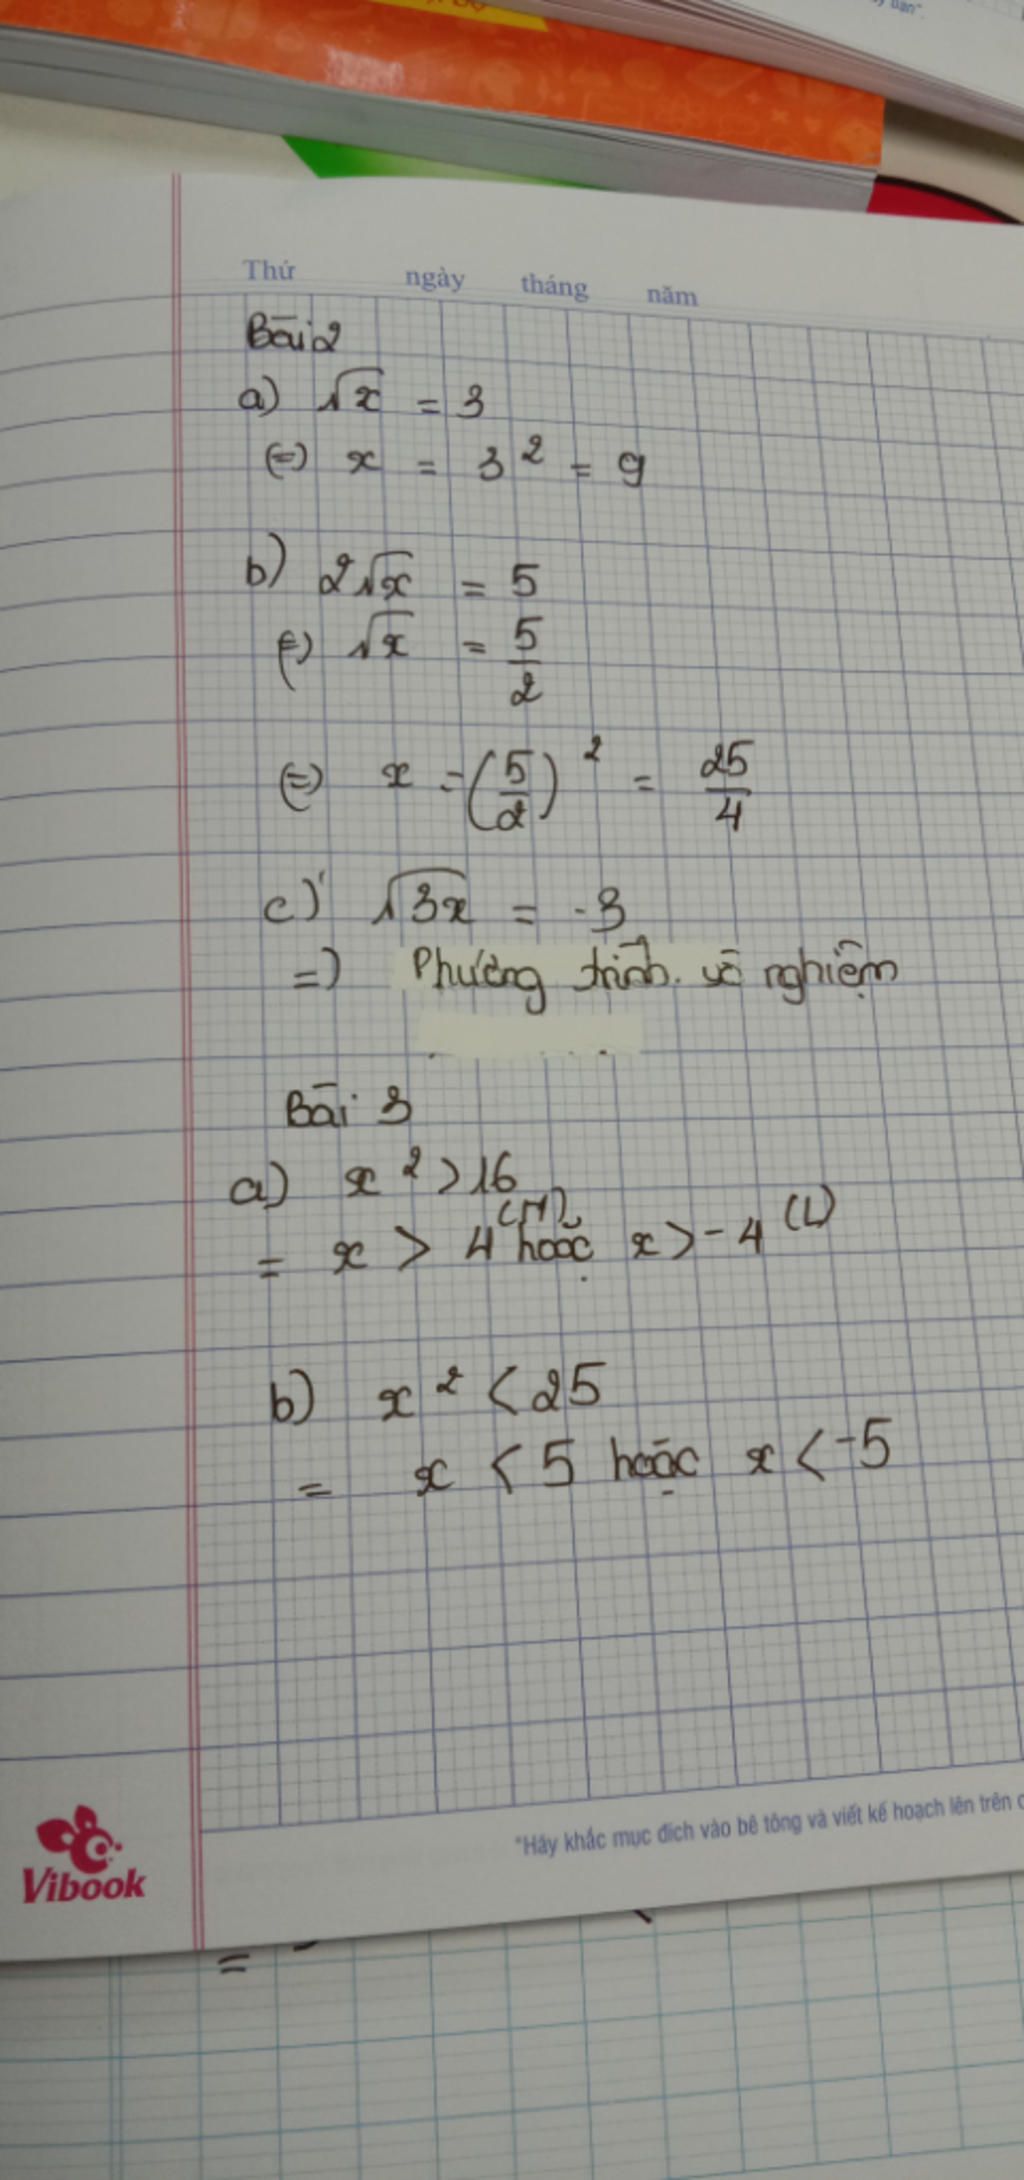 y bạn".
Thứ ngày tháng năm
Bài 2
a) √x = 3
(=) x = 3² = 9
b) 2√x = 5
(=) √x = 5/2
(=) x = (5/2)² = 25/4
c) √3x = -3
=) Phương trình vô nghiệm
Bài 3
a) x² > 16
= x > 4 hoặc x > -4 (L)
b) x² < 25
= x < 5 hoặc x < -5
"Hãy khắc mục đích vào bê tông và viết kế hoạch lên trên
Vibook
=